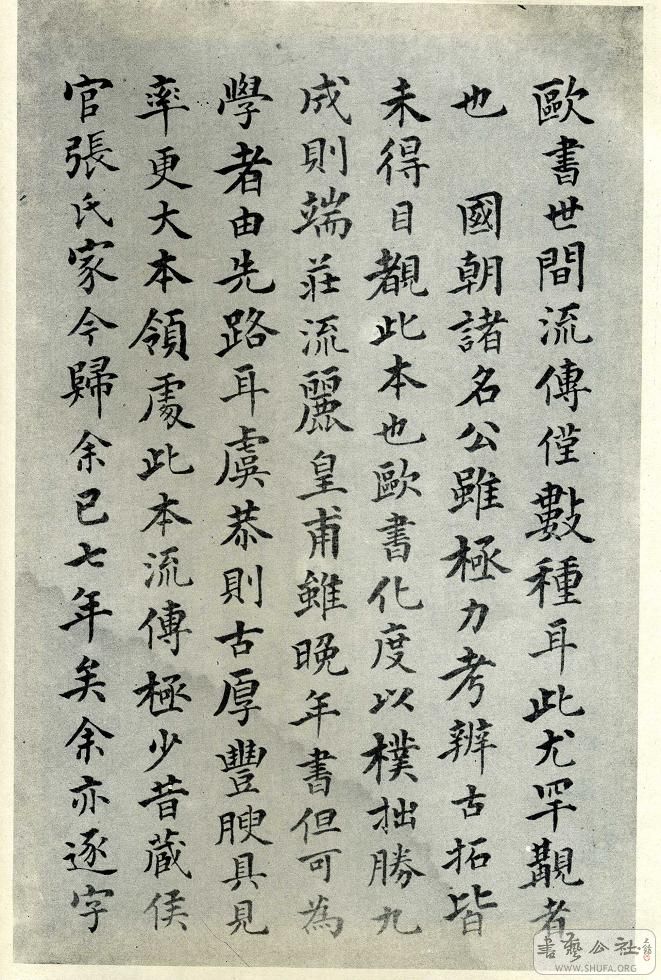 歐書世間流傳僅數種耳此尤罕覯者
也　國朝諸名公雖極力考辨古拓皆
未得目覩此本也歐書化度以樸拙勝九
成則端莊流麗皇甫雖晚年書但可為
學者由先路耳虞恭則古厚豐腴具見
率更大本領處此本流傳極少昔藏侯
官張氏家今歸余已七年矣余亦逐字
書藝公社
WWW.SHUFA.ORG